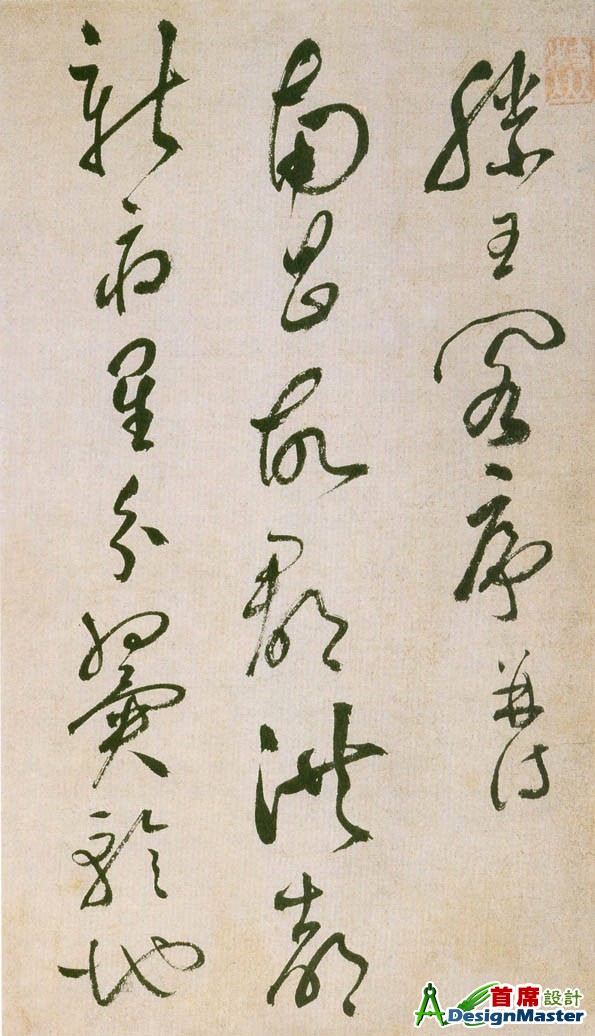 滕王閣序 並詩
南昌故郡洪都
新府星分翼軫地
首席設計
DesignMaster